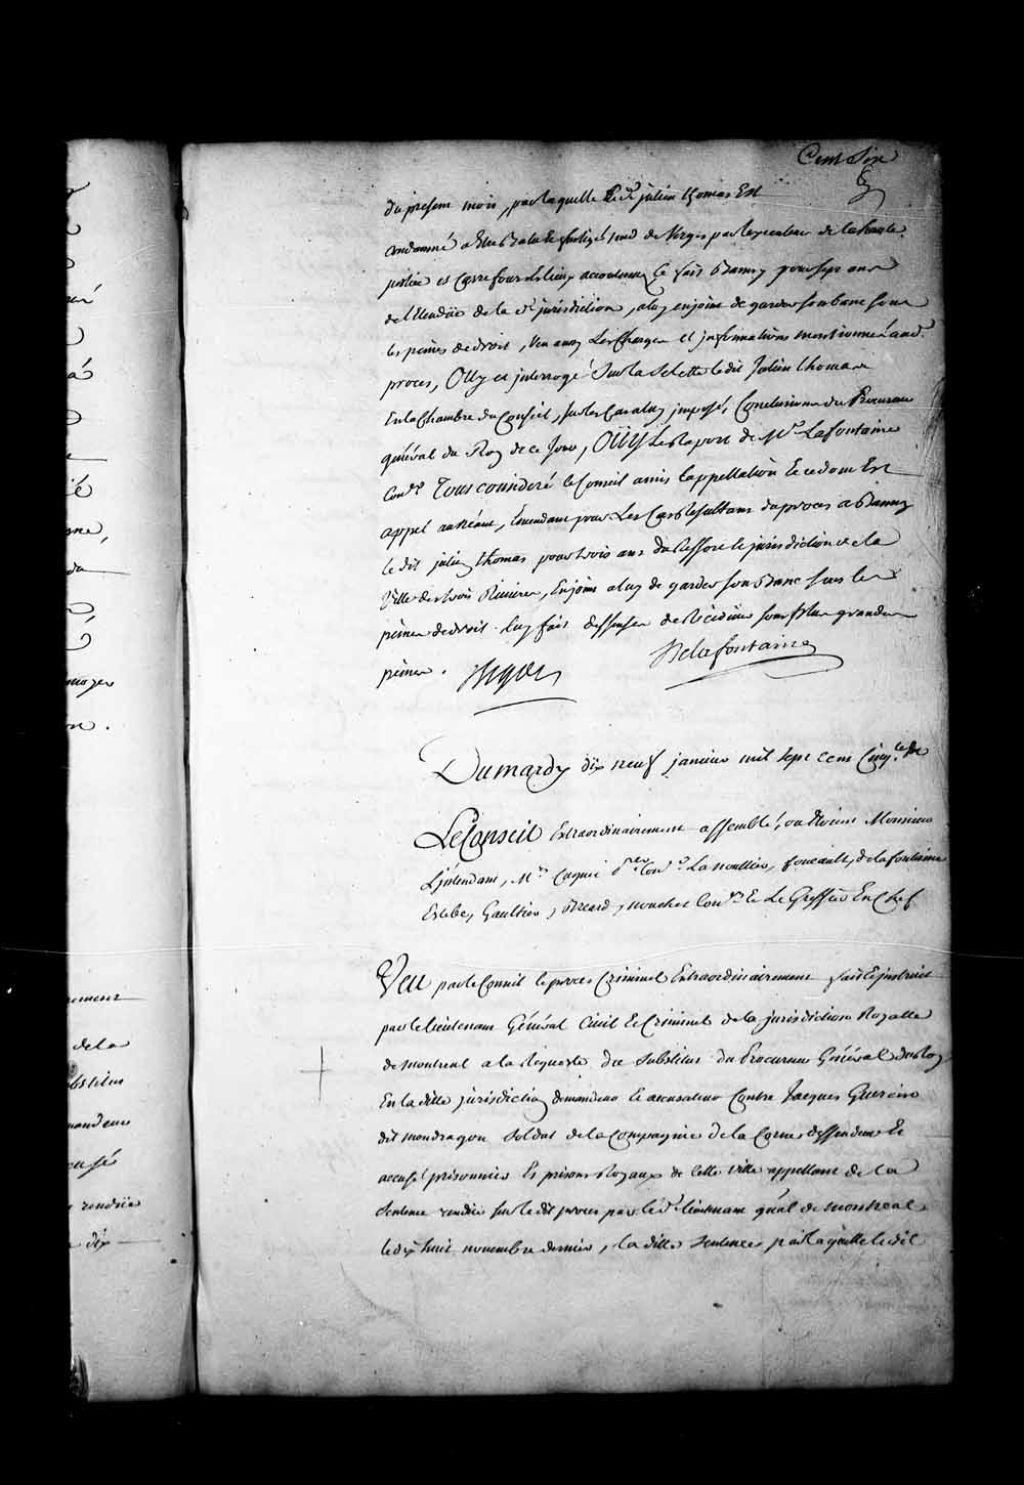 Cent Six
du present mois, par laquelle Led.t julien thomas Est
condamné a Estre Battu & fustigé nud de Verges par l'executeur de la haute
justice es Carrefours & lieux accoutumez Ce fait Banny pour sept ans
de l'Etendüe de la d.e jurisdiction, a luy enjoint de garder son banc sous
les peines de droit, Veu aussy Les Charges et jnformations mentionnées aud.
procés, Oüy et jnterrogé Sur la Selette le dit Julien thomas
En la Chambre du Conseil, sur les Cas a luy jmposés, Conclusions du Procureur
général du Roy de ce Jour, OÜY Le Raport de M.r Lafontaine
Con.er Tout consideré le Conseil a mis l'appellation & ce dont Est
appel au Néant, Emendant pour Les Cas Resultans du procés a Banny
le dit julien thomas pour trois ans du Ressort de la jurisdiction de la
Ville des trois Rivieres, Enjoint a luy de garder son Banc sous les
peines de droit. luy fait deffenses de Récidiver sous plus grandes
peines. Bigot Delafontaine
Du mardy dix neuf janvier mil sept cent Cinq.te
Le Conseil Extraordinairement assemblé, ou Etoient Monsieur
L'jntendant, M.rs Cugnet p.er Con.er Lanoullier, foucault, de lafontaine
Estebe, Gaultier, Breard, nouchet Con.ers & Le Greffier En Chef
Veu par le Conseil le procés Criminel Extraordinairement fait & jnstruit
par le lieutenant Général Civil & Criminel de la jurisdiction Royalle
de montreal a la Requeste du Substitut du Procureur Général du Roy
En la ditte jurisdiction demandeur & accusateur Contre Jacques Guerin
dit mondragon Soldat de la Compagnie de la Corne deffendeur &
accusé prisonnier Es prisons Royaux de Cette Ville appellant de la
Sentence rendüe sur le dit procés par le d.t lieutenant g'nal de montreal
le dix huit novembre dernier, la ditte Sentence par laquelle le dit